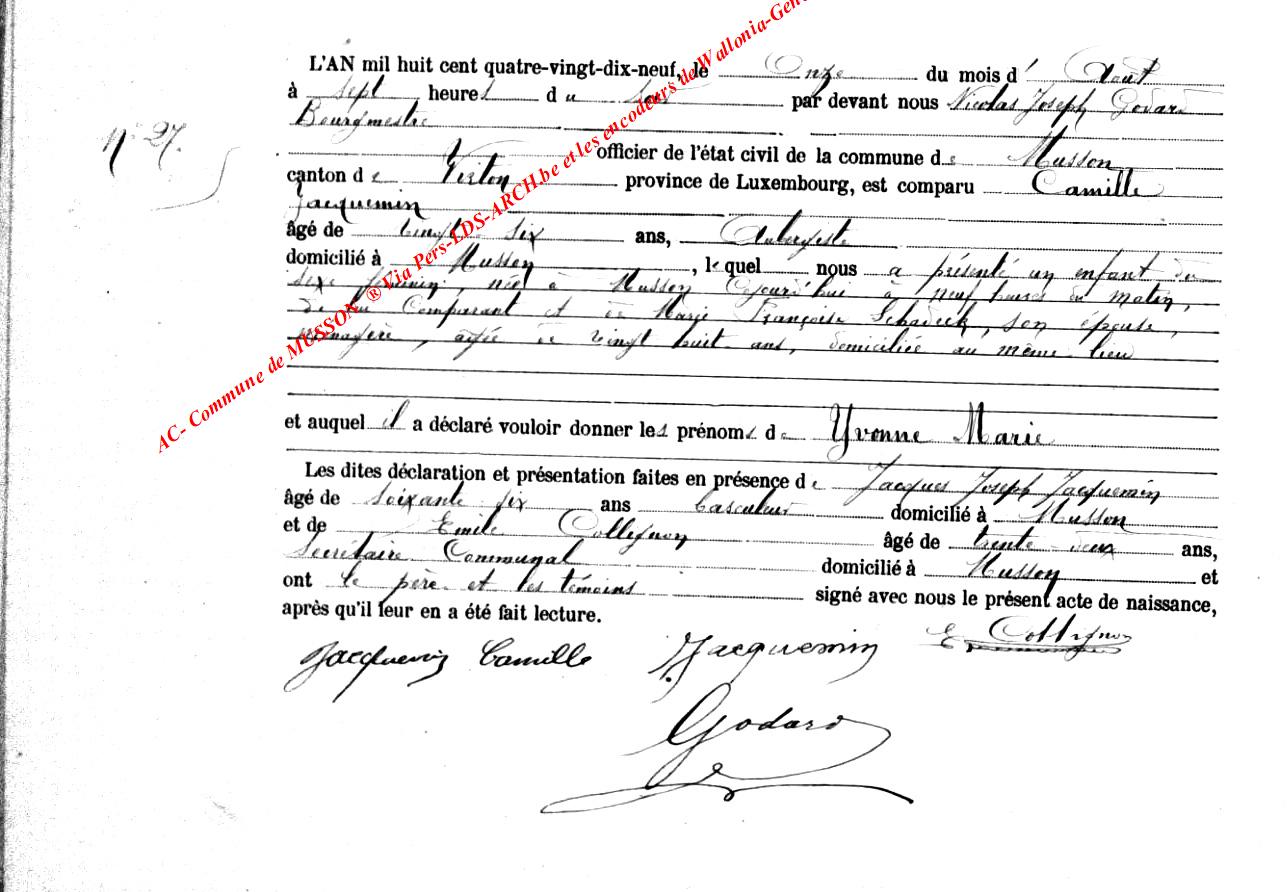 AC- Commune de MUSSON ® Via Pers-LDS-ARCH.be et les encodeurs de Wallonia-Gen
L'AN mil huit cent quatre-vingt-dix-neuf, le Onze du mois d' Aout
à sept heures du soir par devant nous Nicolas Joseph Godard
Bourgmestre
N° 27.
officier de l'état civil de la commune de Musson
canton de Virton province de Luxembourg, est comparu Camille
Jacquemin
âgé de vingt six ans, Aubergiste
domicilié à Musson, lequel nous a présenté un enfant du
sexe féminin, née à Musson cejourd'hui à neuf heures du matin,
de lui Comparant et de Marie Françoise Schadeck, son épouse,
ménagère, agée de vingt huit ans, domiciliée au même lieu
et auquel il a déclaré vouloir donner les prénoms de Yvonne Marie
Les dites déclaration et présentation faites en présence de Jacques Joseph Jacquemin
âgé de soixante six ans basculeur domicilié à Musson
et de Emile Collignon âgé de trente deux ans,
Secrétaire Communal domicilié à Musson et
ont le père et les témoins signé avec nous le présent acte de naissance,
après qu'il leur en a été fait lecture.
Jacquemin Camille JJacquemin E Collignon
Godard